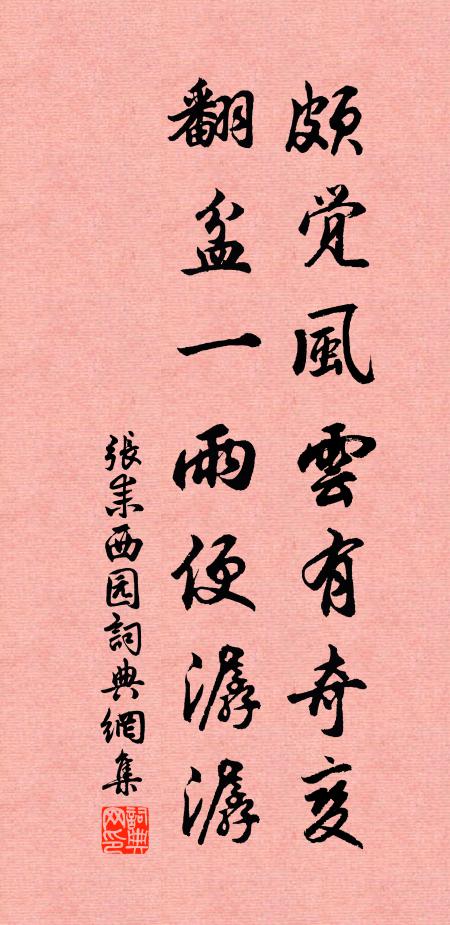 頗觉風雲有奇变
翻盆一雨便潺潺
張耒西园詞典網集
詞典网印